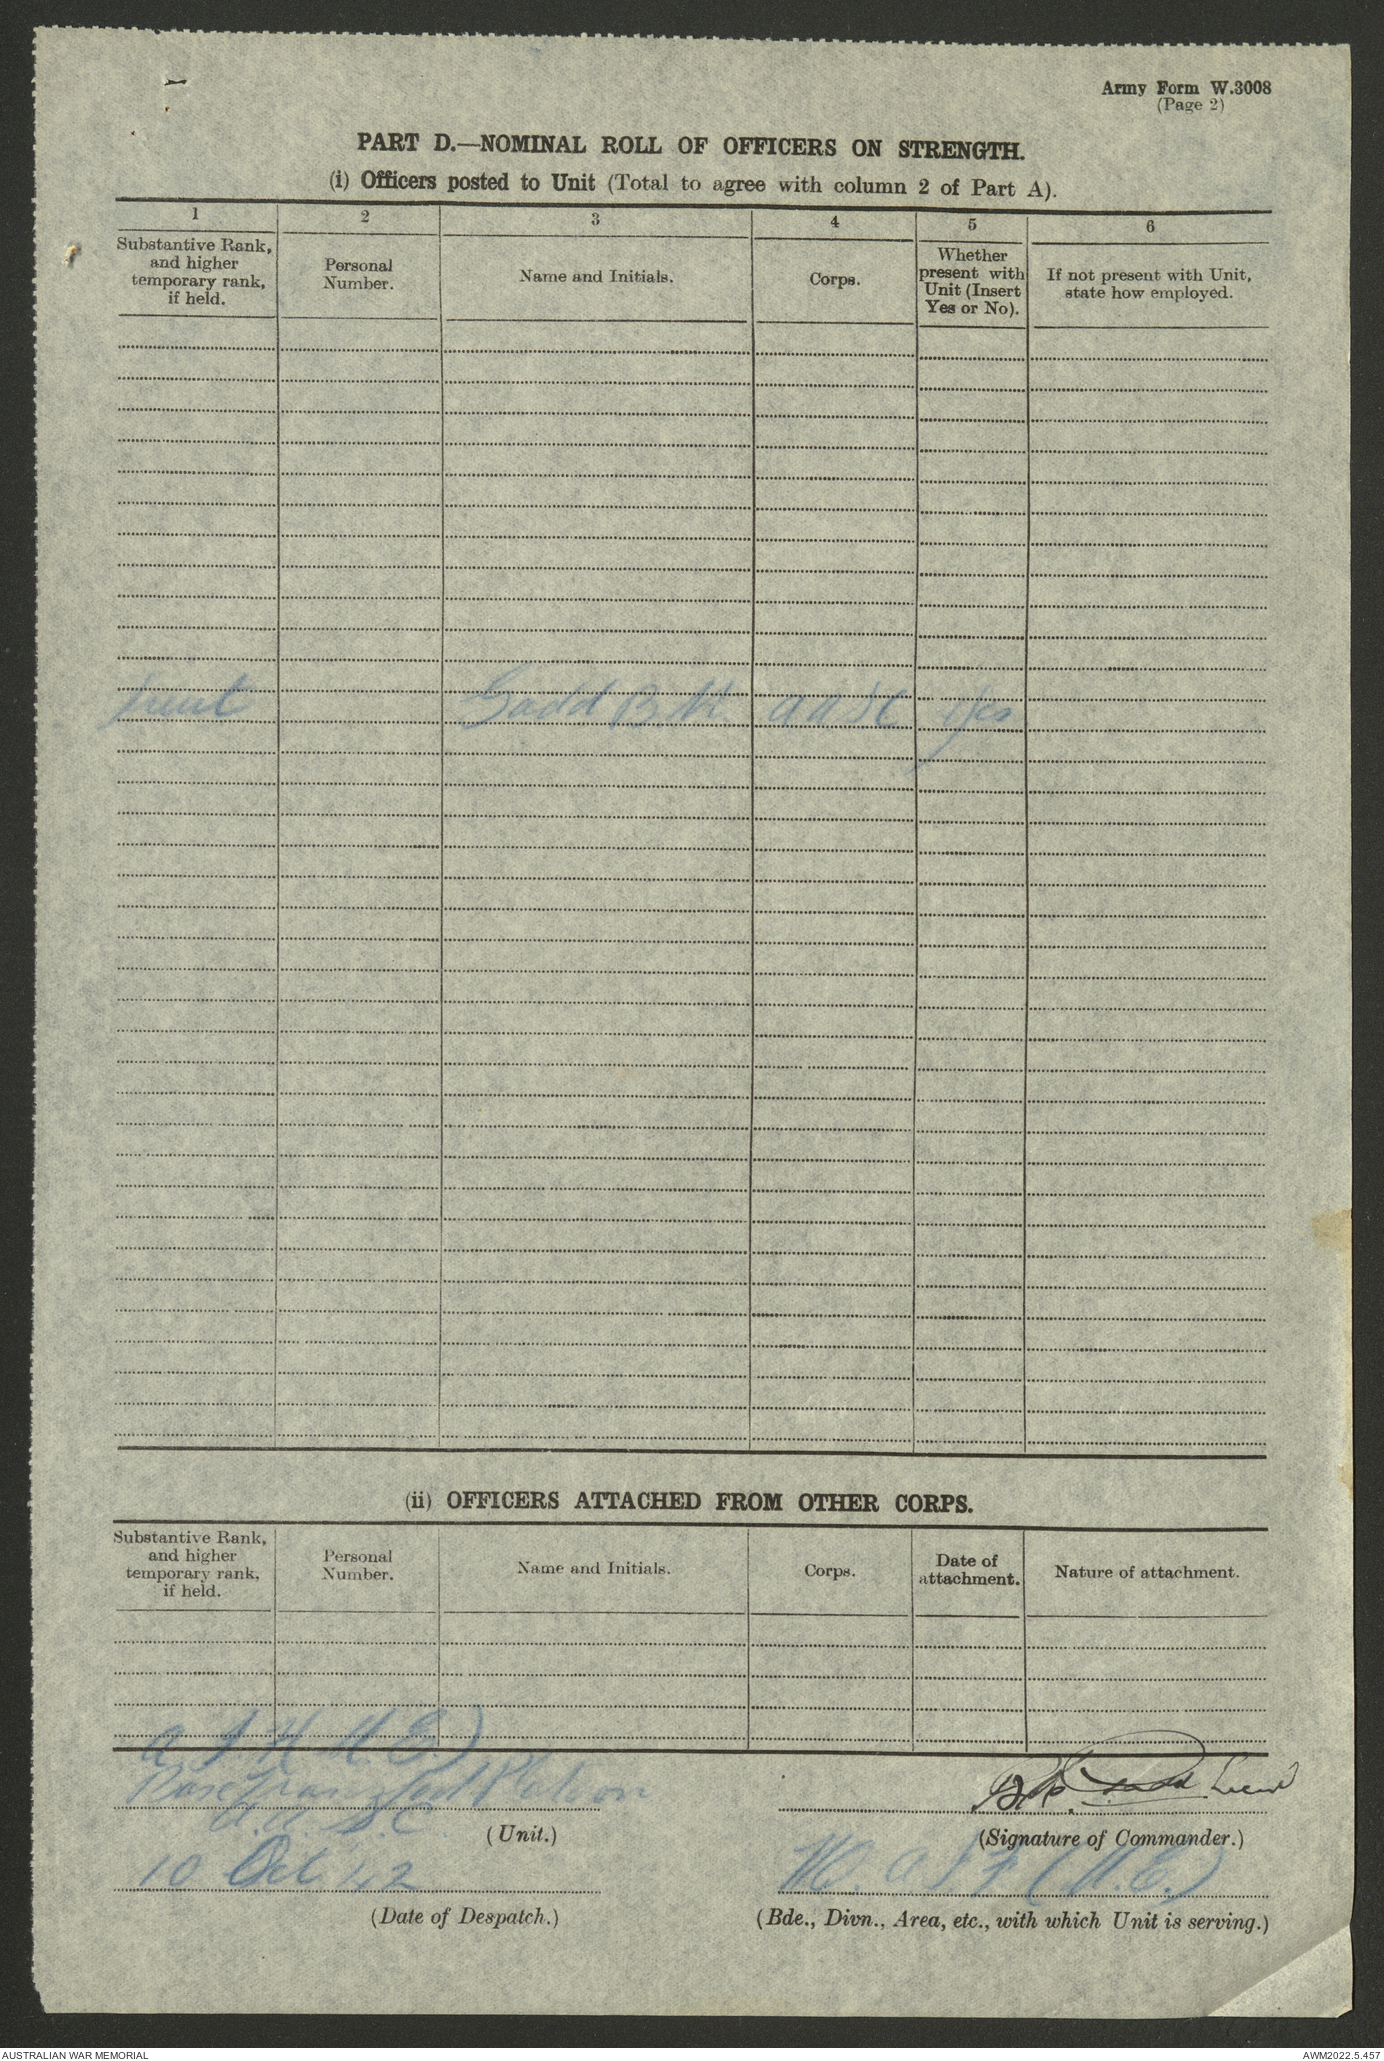 Army Form W.3008
(Page 2)
PART D.—NOMINAL ROLL OF OFFICERS ON STRENGTH.
(i) Officers posted to Unit (Total to agree with column 2 of Part A).
1 2 3 4 5 6
Substantive Rank, and higher temporary rank, if held. Personal Number. Name and Initials. Corps. Whether present with Unit (Insert Yes or No). If not present with Unit, state how employed.
Lieut Gadd B.M. AASC Yes
(ii) OFFICERS ATTACHED FROM OTHER CORPS.
Substantive Rank, and higher temporary rank, if held. Personal Number. Name and Initials. Corps. Date of attachment. Nature of attachment.
Platoon
A.A.S.C. Lieut
(Unit.) (Signature of Commander.)
10 Oct 42 A I F (M.E.)
(Date of Despatch.) (Bde., Divn., Area, etc., with which Unit is serving.)
AUSTRALIAN WAR MEMORIAL AWM2022.5.457